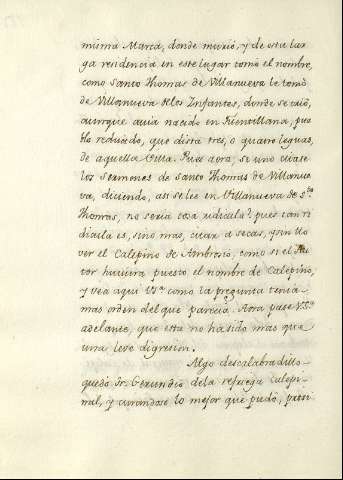 misma Marca, donde murió, y de esta lar
ga residencia en este lugar tomó el nombre,
como Santo Thomas de Villanueva le tomó
de Villanueva de los Infantes, donde se crió,
aunque avia nacido en Fuenllana, pue
blo reducido, que dista tres, o quatro leguas,
de aquella Villa. Pues aora, si uno citase
los Sermones de Santo Thomas de Villanue
va, diciendo, asi se lee en Villanueva de Sto.
Thomas, no seria cosa ridicula? pues tan ri
dicula es, sino mas, citar a secas, y sin llo
ver el Calepino de Ambrosio, como si el Au
tor huviera puesto el nombre de Calepino,
y vea aqui Vsª como la pregunta tenia
mas orden del que parecia. Aora pase V.Sª
adelante, que esta no ha sido mas que
una leve digresion.
Algo descalabradillo
quedó Fr. Gerundio de la refriega calepi
nal, y curandose lo mejor que pudo, prosi